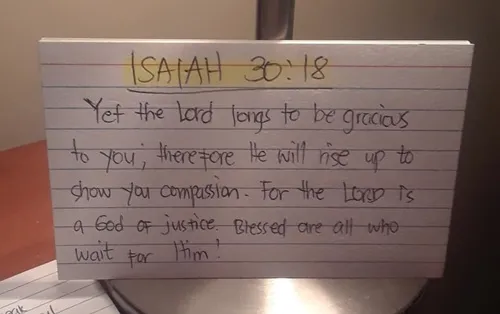 ISAIAH 30:18
Yet the Lord longs to be gracious
to you; therefore He will rise up to
show you compassion. For the LORD is
a God of justice. Blessed are all who
wait for Him!